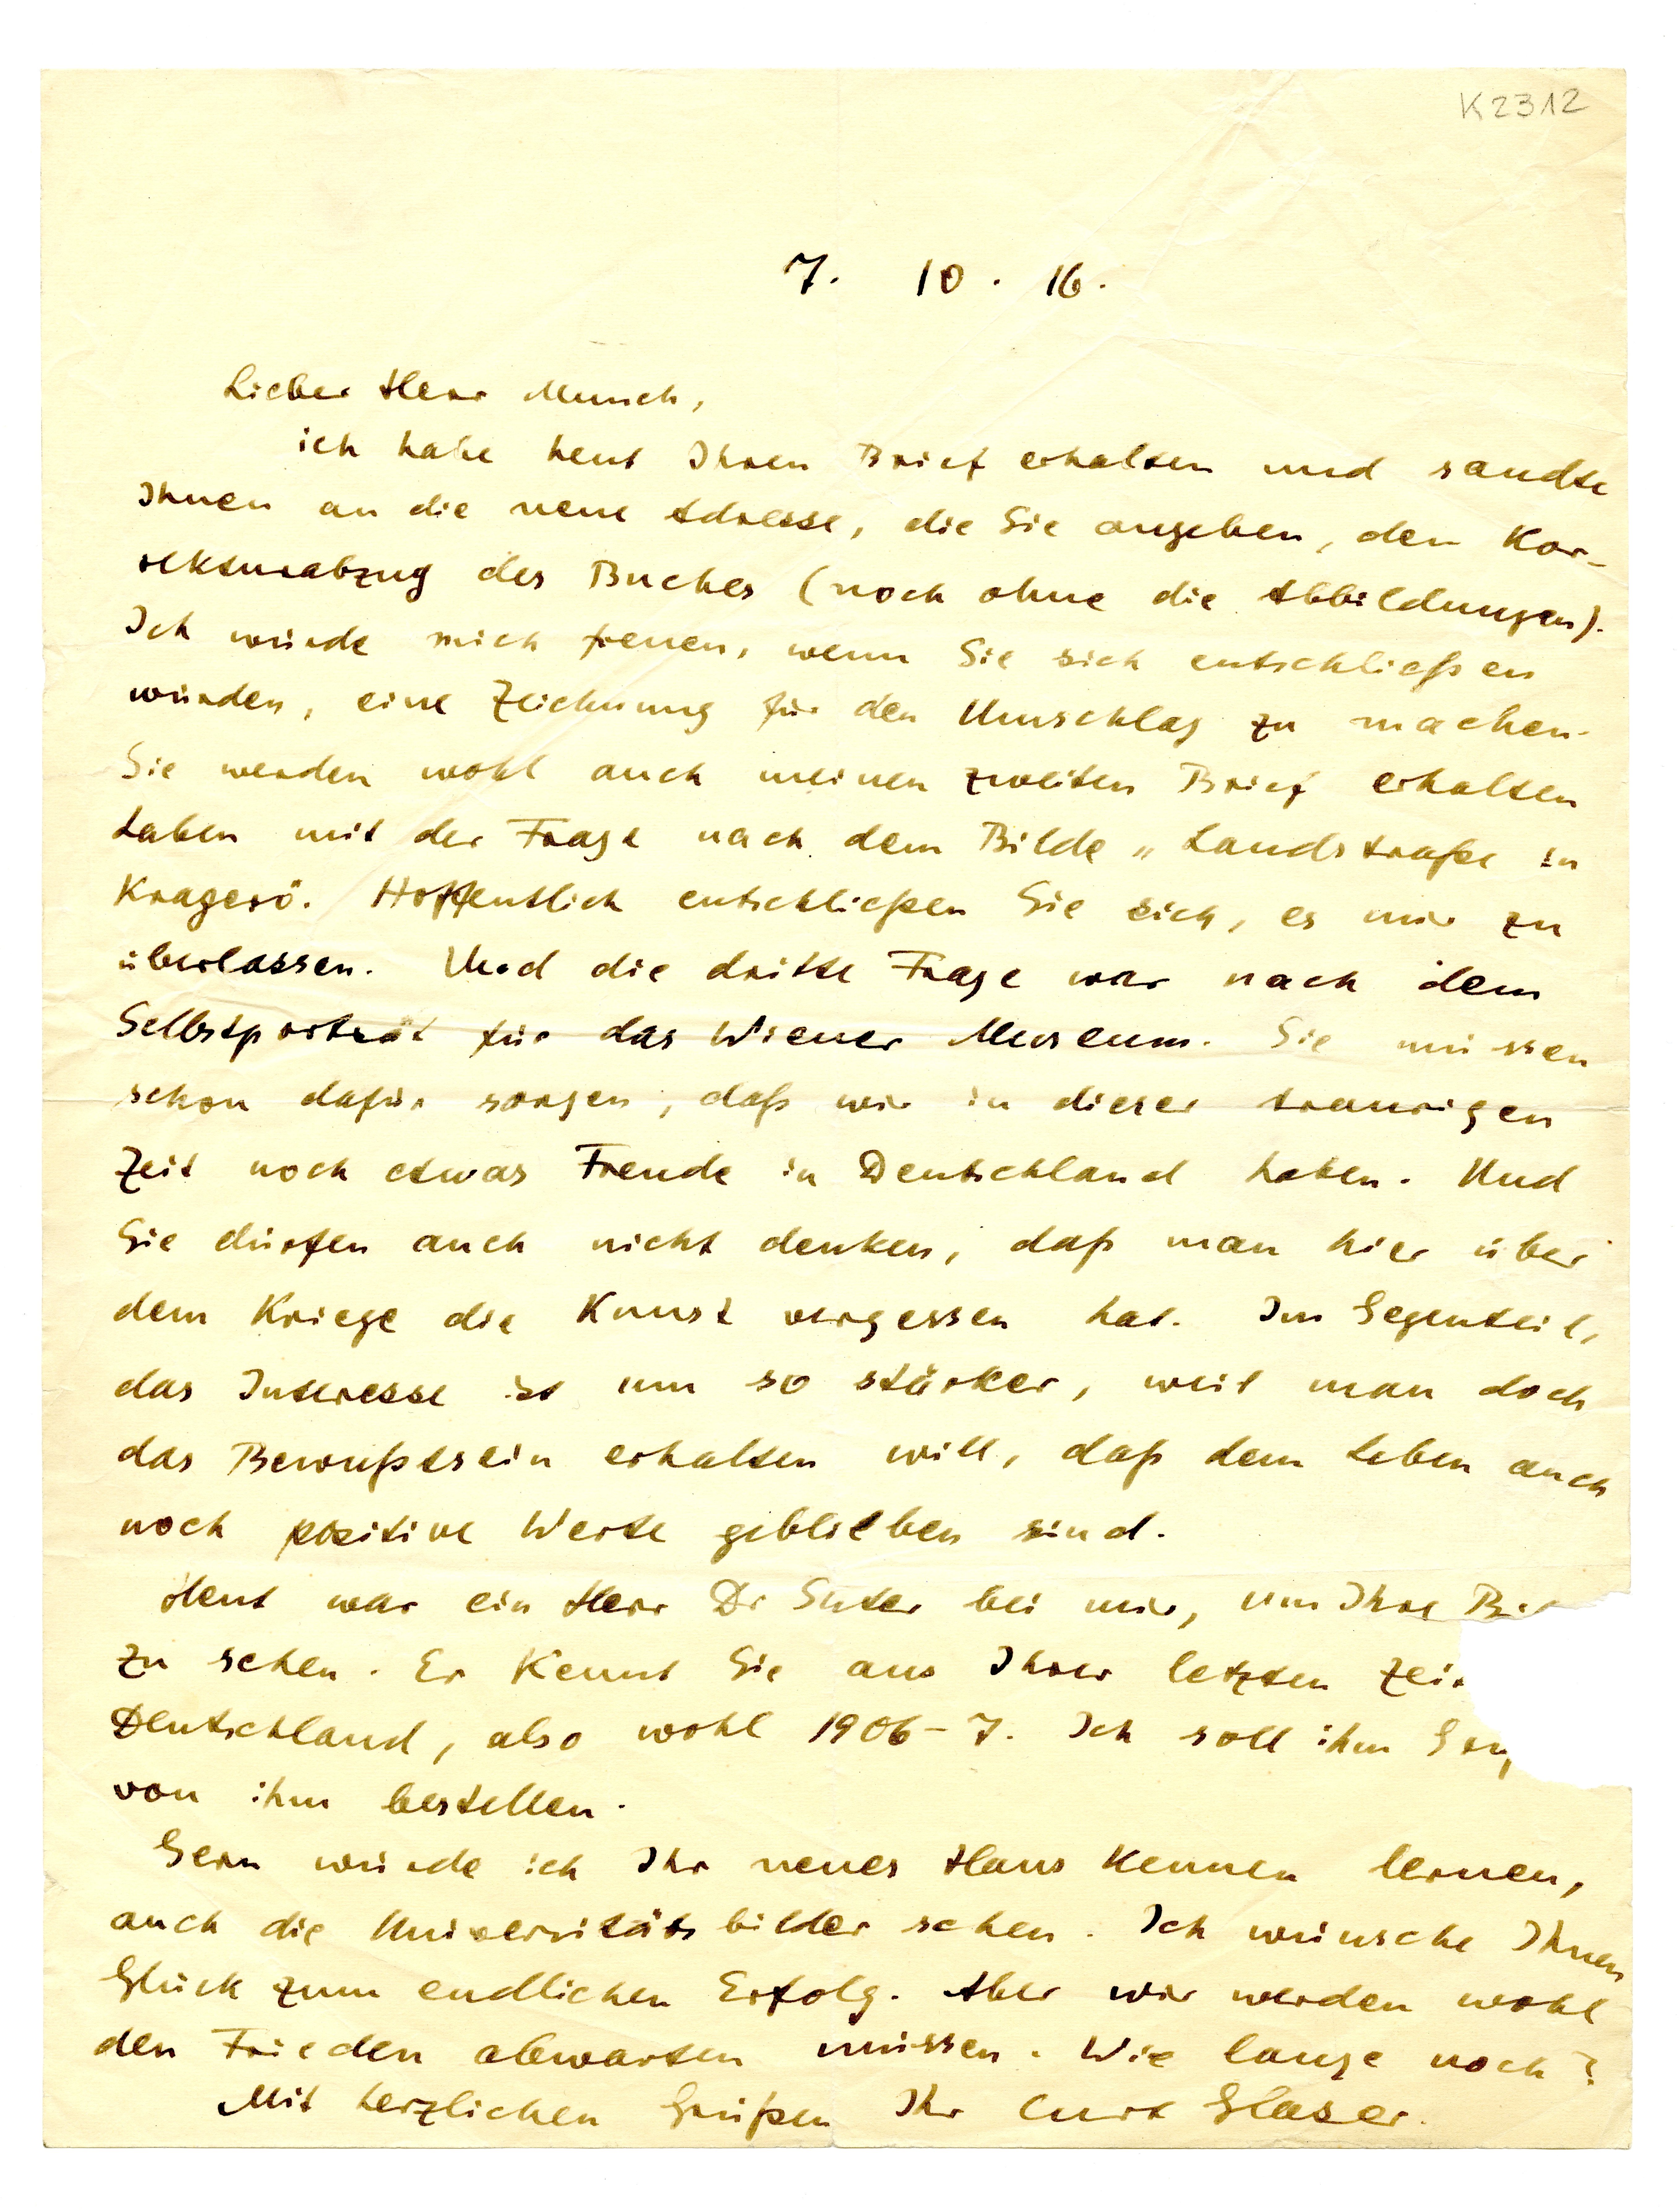 K2312
7. 10. 16.
Lieber Herr Munch,
ich habe heut Ihren Brief erhalten und sandte
Ihnen an die neue Adresse, die Sie angeben, den Kor-
rekturabzug des Buches (noch ohne die Abbildungen).
Ich würde mich freuen, wenn Sie sich entschließen
würden, eine Zeichnung für den Umschlag zu machen.
Sie werden wohl auch meinen zweiten Brief erhalten
haben mit der Frage nach dem Bilde „Landstraße in
Kragerö. Hoffentlich entschließen Sie sich, es mir zu
überlassen. Und die dritte Frage war nach dem
Selbstporträt für das Wiener Museum. Sie müssen
schon dafür sorgen, daß wir in dieser traurigen
Zeit noch etwas Freude in Deutschland haben. Und
Sie dürfen auch nicht denken, daß man hier über
dem Kriege die Kunst vergessen hat. Im Gegenteil,
das Interesse ist um so stärker, weil man doch
das Bewußtsein erhalten will, daß dem Leben auch
noch positive Werte geblieben sind.
Heut war ein Herr Dr Suter bei mir, um Ihre
zu sehen. Er kennt Sie aus Ihrer letzten Zeit
Deutschland, also wohl 1906-7. Ich soll ihm
von ihm bestellen.
Gern würde ich Ihr neues Haus kennen lernen,
auch die Universitätsbilder sehen. Ich wünsche Ihnen
Glück zum endlichen Erfolg. Aber wir werden wohl
den Frieden abwarten müssen. Wie lange noch?
Mit herzlichen Grüßen Ihr Curt Glaser.